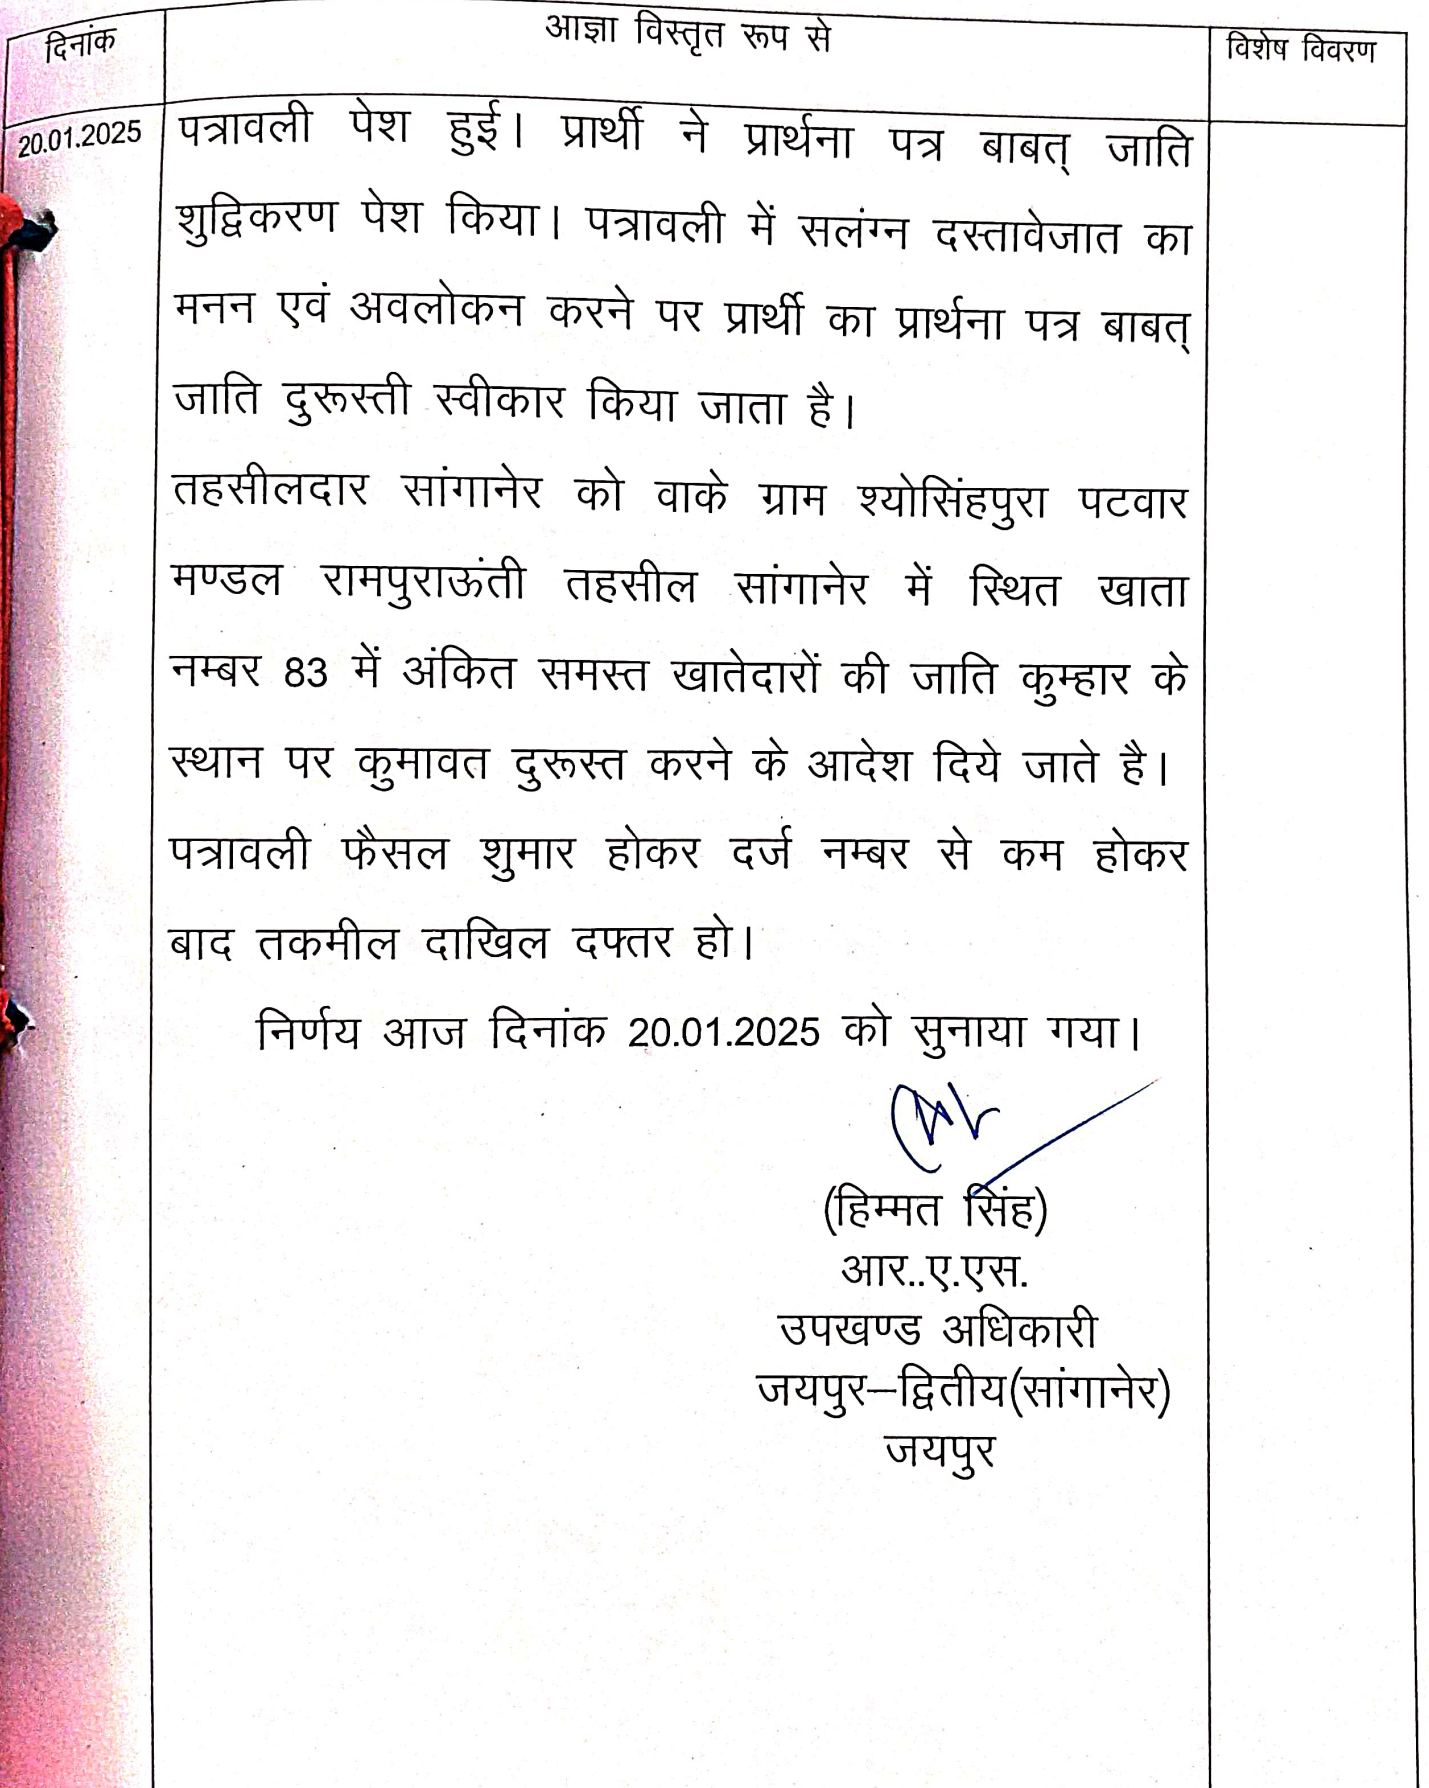 दिनांक
आज्ञा विस्तृत रूप से
विशेष विवरण
20.01.2025
पत्रावली पेश हुई। प्रार्थी ने प्रार्थना पत्र बाबत् जाति
शुद्विकरण पेश किया। पत्रावली में सलंग्न दस्तावेजात का
मनन एवं अवलोकन करने पर प्रार्थी का प्रार्थना पत्र बाबत्
जाति दुरूस्ती स्वीकार किया जाता है।
तहसीलदार सांगानेर को वाके ग्राम श्योसिंहपुरा पटवार
मण्डल रामपुराऊंती तहसील सांगानेर में स्थित खाता
नम्बर 83 में अंकित समस्त खातेदारों की जाति कुम्हार के
स्थान पर कुमावत दुरूस्त करने के आदेश दिये जाते है।
पत्रावली फैसल शुमार होकर दर्ज नम्बर से कम होकर
बाद तकमील दाखिल दफ्तर हो।
निर्णय आज दिनांक 20.01.2025 को सुनाया गया।
(हिम्मत सिंह)
आर..ए.एस.
उपखण्ड अधिकारी
जयपुर–द्वितीय(सांगानेर)
जयपुर